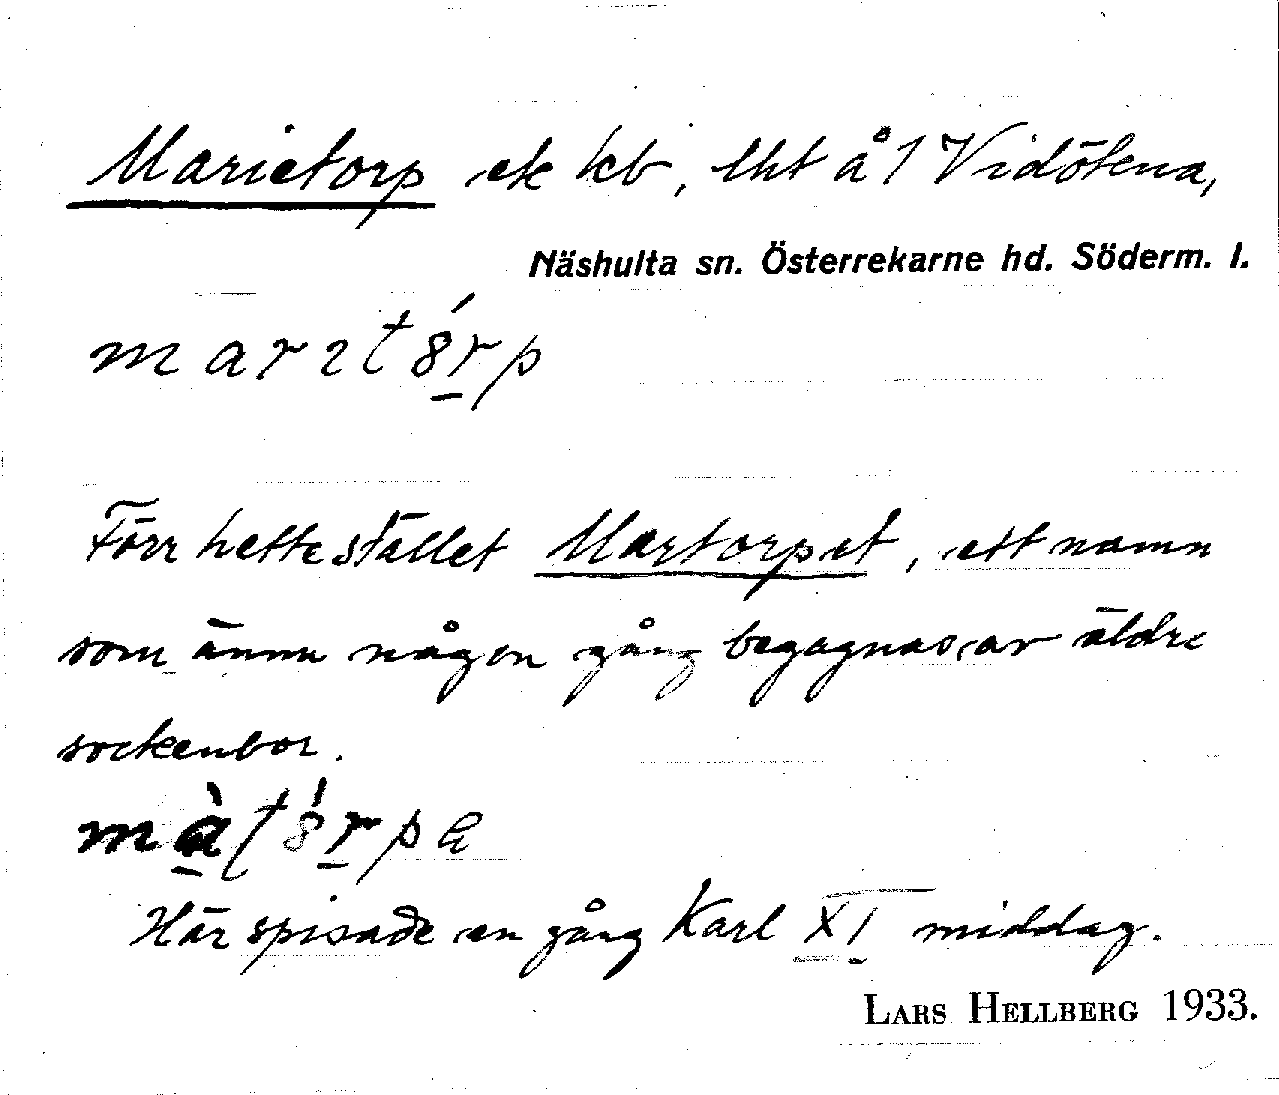 Marietorp ek kb, tht å 1 Vidökna,
Näshulta sn. Österrekarne hd. Söderm. l.
marıt8́rp
Förr hette stället Martorpet, ett namn
som ännu någon gång begagnas av äldre
sockenbor.
màt8́rpa
Här spisade en gång Karl XI middag.
LARS HELLBERG 1933.